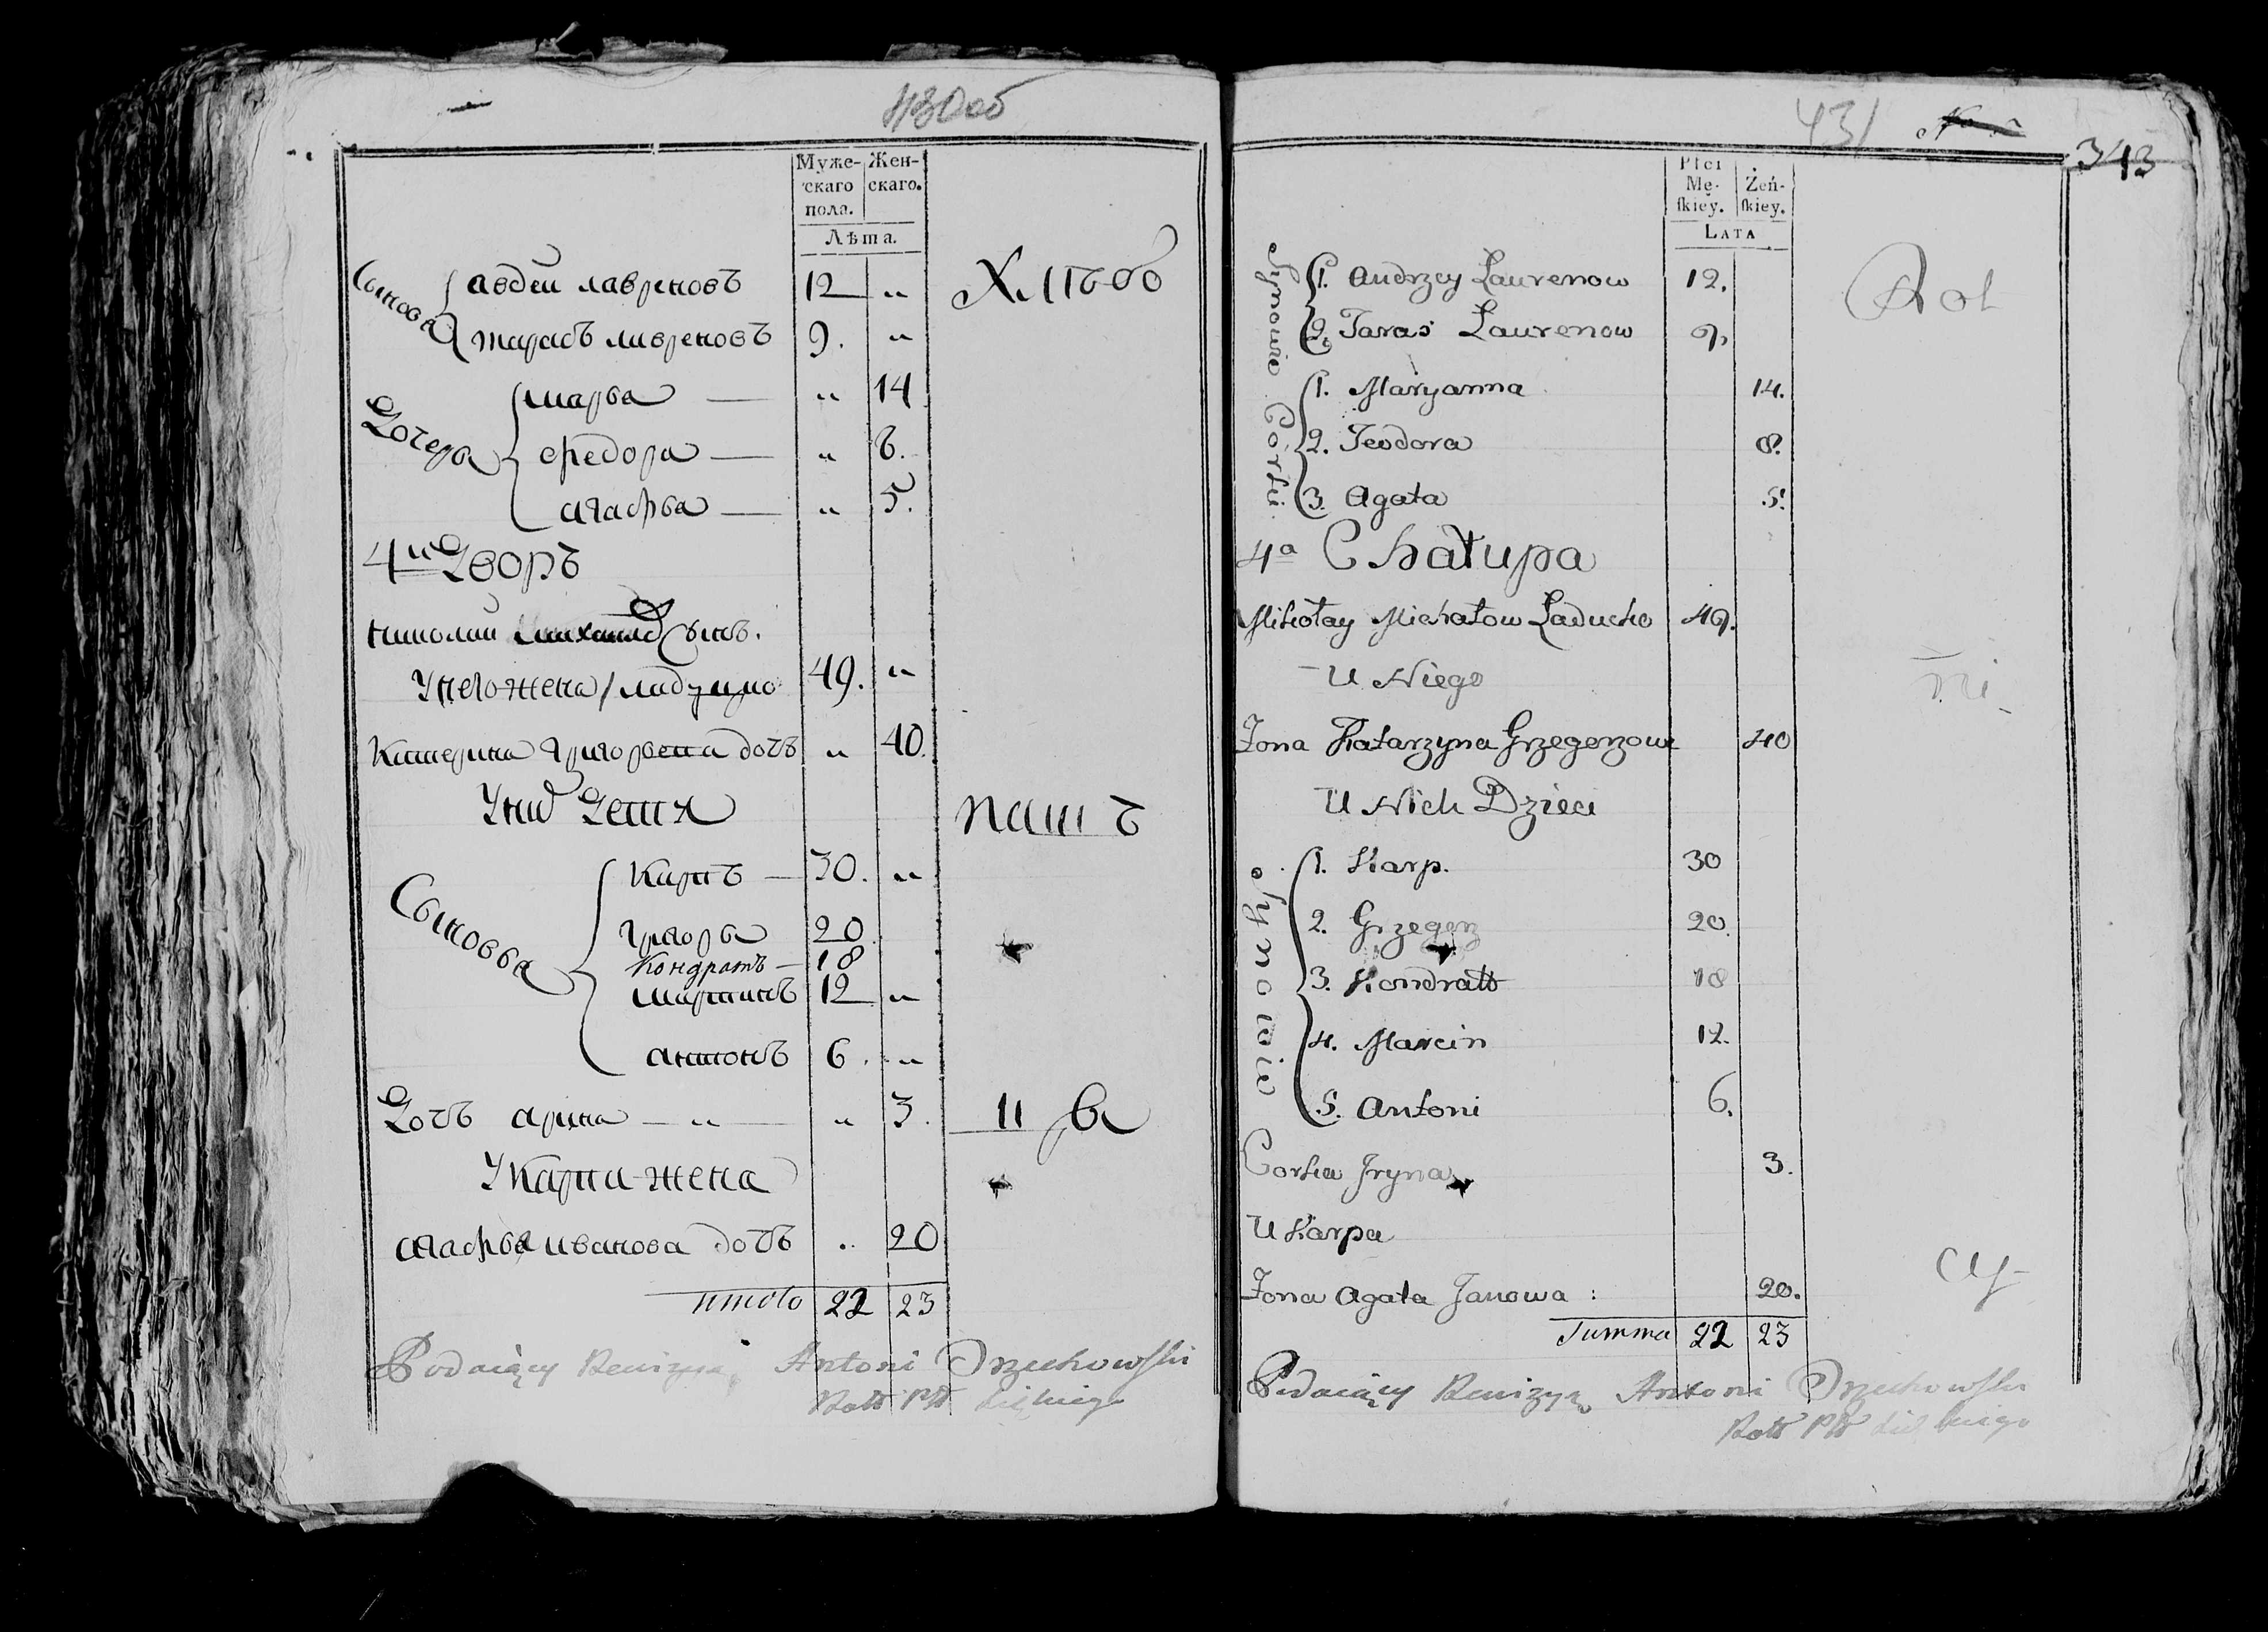 430об
Муже-
скаго
пола.
Жен-
скаго.
Лѣта.
Сыновья
авдеи лавреновъ 12 „
тарасъ лавреновъ 9. „
Дочеря
марва — „ 14
федора — „ 8.
агафья — „ 5.
4й Дворъ
николаи михаила Сынъ.
У него жена / ладушко 49. „
Катерина григорьева дочь „ 40.
У них Детя
Сыновья
Карпъ — 30. „
григорьи 20.
Кондратъ — 18
мартинъ 12 „
антонъ 6. „
Дочь арина — „ — „ 3.
У Карпа жена
агафья иванова дочь „ 20
итого 22 23
Podaiący Rewizyą Antoni Orzechowski
431
343
Płci
Mę-
skiey.
Żeń-
skiey.
LATA
Synowie
1. Andrzey Laurenow 12.
2. Taras Laurenow 9.
Córki
1. Maryanna 14.
2. Teodora 8.
3. Agata 5.
4a Chałupa
Mikołay Michałow Laduchо 49.
U Niego
Żona Katarzyna Grzegorzowa 40
U Nich Dzieci
Synowie
1. Karp. 30
2. Grzegorz 20.
3. Kondratt 18
4. Marcin 12.
5. Antoni 6.
Corka Jryna 3.
U Karpa
Żona Agata Janowa : 20.
Summa 22 23
Podaiący Rewizyą Antoni Orzechowski